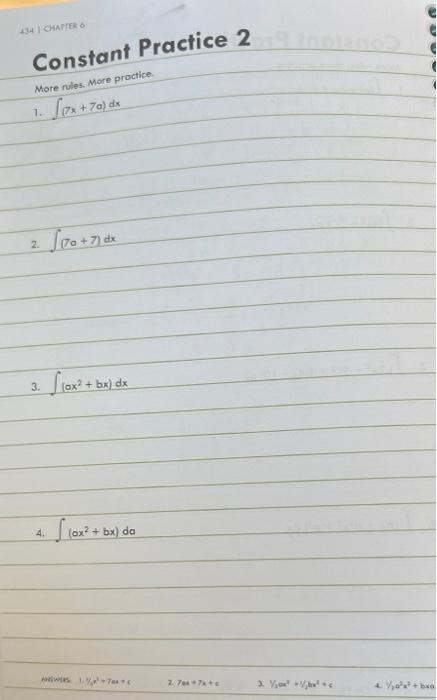 434 | CHAPTER 6
Constant Practice 2
More rules. More practice.
1. ∫(7x + 7a) dx
2. ∫(7a + 7) dx
3. ∫(ax² + bx) dx
4. ∫(ax² + bx) da
ANSWERS: 1. 7/2x² + 7ax + c 2. 7ax + 7x + c 3. 1/3ax³ + 1/2bx² + c 4. 1/2a²x² + bxa